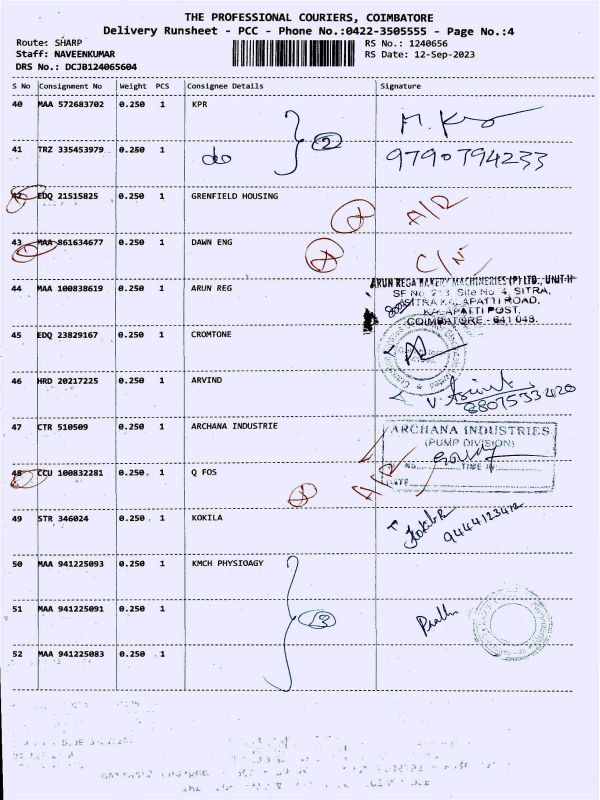 THE PROFESSIONAL COURIERS, COIMBATORE
Delivery Runsheet - PCC - Phone No.:0422-3505555 - Page No.:4
Route: SHARP
Staff: NAVEENKUMAR
DRS No.: DCJB124065604
RS No.: 1240656
RS Date: 12-Sep-2023
S No Consignment No Weight PCS Consignee Details Signature
40 MAA 572683702 0.250 1 KPR
2
41 TRZ 335453979 0.250 1 do 9790794233
42 EDQ 21515825 0.250 1 GRENFIELD HOUSING
43 MAA 861634677 0.250 1 DAWN ENG
44 MAA 100838619 0.250 1 ARUN REG
ARUN REGA BAKERY MACHINERIES (P) LTD., UNIT-II
SF No. 213 Site No 4, SITRA,
SITRA KALAPATTI ROAD,
KALAPATTI POST,
COIMBATORE - 641 048.
45 EDQ 23829167 0.250 1 CROMTONE
46 HRD 20217225 0.250 1 ARVIND
47 CTR 510509 0.250 1 ARCHANA INDUSTRIE
ARCHANA INDUSTRIES
(PUMP DIVISION)
NO. TIME IN:
DATE
48 CCU 100832281 0.250 1 Q FOS
49 STR 346024 0.250 1 KOKILA
50 MAA 941225093 0.250 1 KMCH PHYSIOAGY
51 MAA 941225091 0.250 1
3
52 MAA 941225083 0.250 1